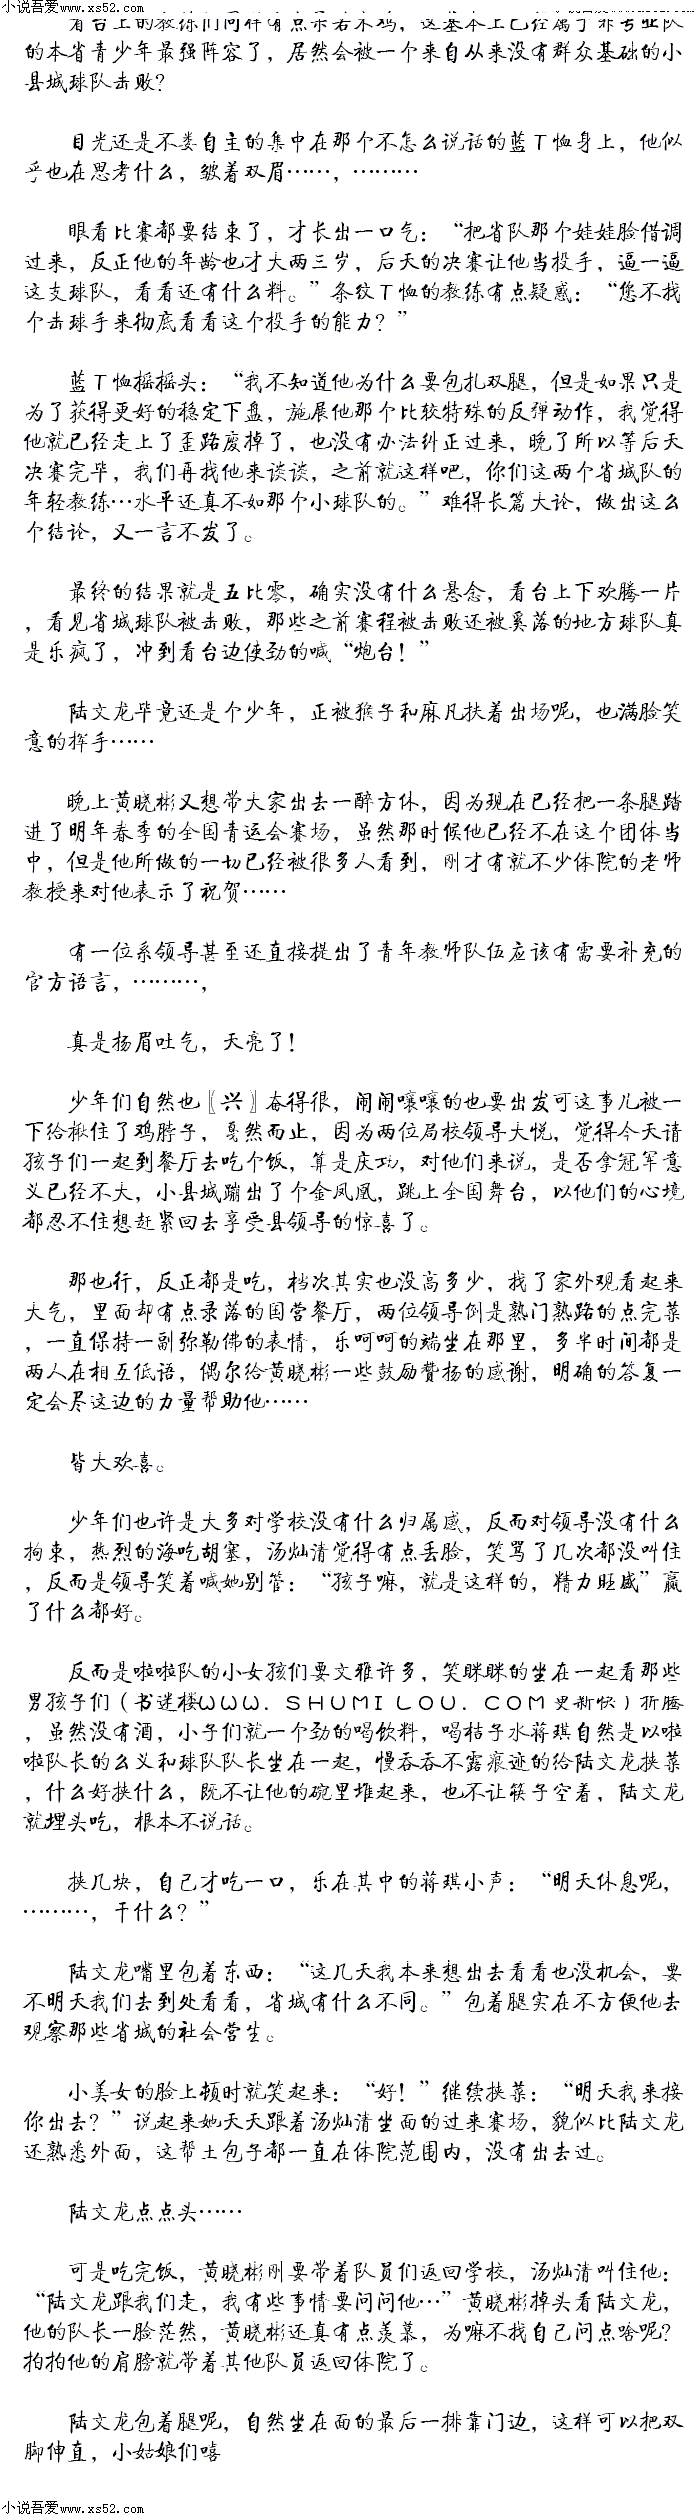 小说吾爱 www.xs52.com
小说吾爱 www.xs52.com
看台上的教练们同样有点呆若木鸡，这基本上已经属于非专业队
的本省青少年最强阵容了，居然会被一个来自从来没有群众基础的小
县城球队击败？
目光还是不娄自主的集中在那个不怎么说话的蓝T恤身上，他似
乎也在思考什么，皱着双眉……，………
眼看比赛都要结束了，才长出一口气：“把省队那个娃娃脸借调
过来，反正他的年龄也才大两三岁，后天的决赛让他当投手，逼一逼
这支球队，看看还有什么料。”条纹T恤的教练有点疑惑：“您不找
个击球手来彻底看看这个投手的能力？”
蓝T恤摇摇头：“我不知道他为什么要包扎双腿，但是如果只是
为了获得更好的稳定下盘，施展他那个比较特殊的反弹动作，我觉得
他就已经走上了歪路废掉了，也没有办法纠正过来，晚了所以等后天
决赛完毕，我们再找他来谈谈，之前就这样吧，你们这两个省城队的
年轻教练…水平还真不如那个小球队的。”难得长篇大论，做出这么
个结论，又一言不发了。
最终的结果就是五比零，确实没有什么悬念，看台上下欢腾一片
，看见省城球队被击败，那些之前赛程被击败还被奚落的地方球队真
是乐疯了，冲到看台边使劲的喊“炮台！”
陆文龙毕竟还是个少年，正被猴子和麻凡扶着出场呢，也满脸笑
意的挥手……
晚上黄晓彬又想带大家出去一醉方休，因为现在已经把一条腿踏
进了明年春季的全国青运会赛场，虽然那时候他已经不在这个团体当
中，但是他所做的一切已经被很多人看到，刚才有就不少体院的老师
教授来对他表示了祝贺……
有一位系领导甚至还直接提出了青年教师队伍应该有需要补充的
官方语言，………，
真是扬眉吐气，天亮了！
少年们自然也〖兴〗奋得很，闹闹嚷嚷的也要出发可这事儿被一
下给楸住了鸡脖子，戛然而止，因为两位局校领导大悦，觉得今天请
孩子们一起到餐厅去吃个饭，算是庆功，对他们来说，是否拿冠军意
义已经不大，小县城蹦出了个金凤凰，跳上全国舞台，以他们的心境
都忍不住想赶紧回去享受县领导的惊喜了。
那也行，反正都是吃，档次其实也没高多少，找了家外观看起来
大气，里面却有点录落的国营餐厅，两位领导倒是熟门熟路的点完菜
，一直保持一副弥勒佛的表情，乐呵呵的端坐在那里，多半时间都是
两人在相互低语，偶尔给黄晓彬一些鼓励赞扬的感谢，明确的答复一
定会尽这边的力量帮助他……
皆大欢喜。
少年们也许是大多对学校没有什么归属感，反而对领导没有什么
拘束，热烈的海吃胡塞，汤灿清觉得有点丢脸，笑骂了几次都没叫住
，反而是领导笑着喊她别管：“孩子嘛，就是这样的，精力旺盛”赢
了什么都好。
反而是啦啦队的小女孩们要文雅许多，笑眯眯的坐在一起看那些
男孩子们（书迷楼WWW．SHUMILOU．COM更新快）折腾
，虽然没有酒，小子们就一个劲的喝饮料，喝桔子水蒋琪自然是以啦
啦队长的么义和球队队长坐在一起，慢吞吞不露痕迹的给陆文龙挟菜
，什么好挟什么，既不让他的碗里堆起来，也不让筷子空着，陆文龙
就埋头吃，根本不说话。
挟几块，自己才吃一口，乐在其中的蒋琪小声：“明天休息呢，
………，干什么？”
陆文龙嘴里包着东西：“这几天我本来想出去看看也没机会，要
不明天我们去到处看看，省城有什么不同。”包着腿实在不方便他去
观察那些省城的社会营生。
小美女的脸上顿时就笑起来：“好！”继续挟菜：“明天我来接
你出去？”说起来她天天跟着汤灿清坐面的过来赛场，貌似比陆文龙
还熟悉外面，这帮土包子都一直在体院范围内，没有出去过。
陆文龙点点头……
可是吃完饭，黄晓彬刚要带着队员们返回学校，汤灿清叫住他：
“陆文龙跟我们走，我有些事情要问问他…”黄晓彬掉头看陆文龙，
他的队长一脸茫然，黄晓彬还真有点羡慕，为嘛不找自己问点啥呢？
拍拍他的肩膀就带着其他队员返回体院了。
陆文龙包着腿呢，自然坐在面的最后一排靠门边，这样可以把双
脚伸直，小姑娘们嘻
小说吾爱 www.xs52.com
小说吾爱 www.xs52.com